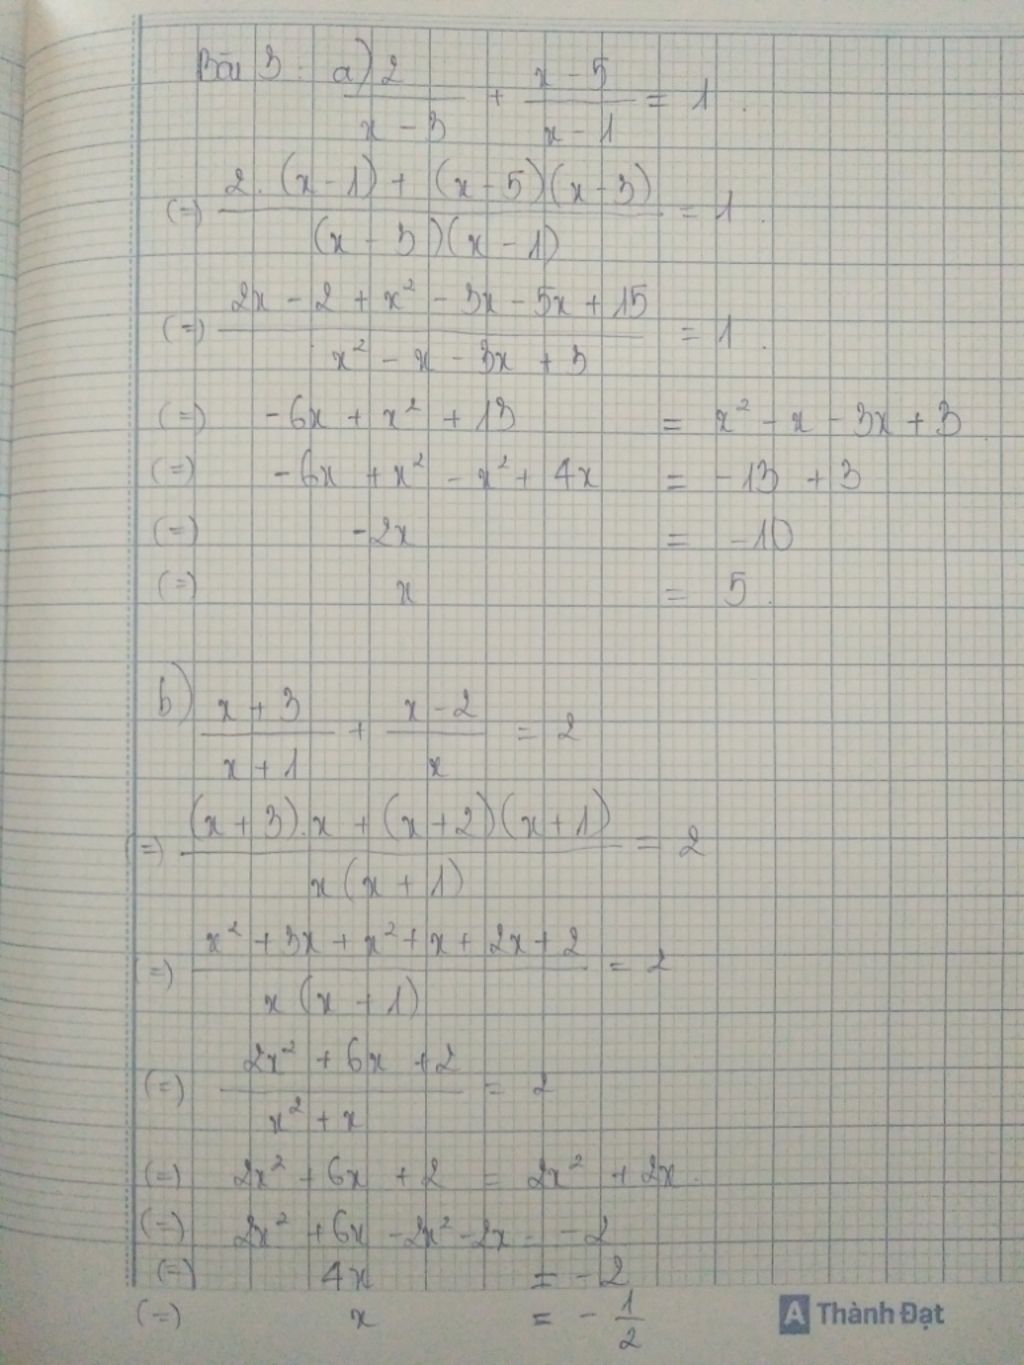 Bài 3 : a) 2/(x - 3) + (x - 5)/(x - 1) = 1.
(=) (2.(x - 1) + (x - 5)(x - 3))/((x - 3)(x - 1)) = 1.
(=) (2x - 2 + x² - 3x - 5x + 15)/(x² - x - 3x + 3) = 1.
(=) -6x + x² + 13 = x² - x - 3x + 3
(=) -6x + x² - x² + 4x = -13 + 3
(=) -2x = -10
(=) x = 5.
b) (x + 3)/(x + 1) + (x - 2)/x = 2
(=) ((x + 3).x + (x + 2)(x + 1))/(x(x + 1)) = 2
(=) (x² + 3x + x² + x + 2x + 2)/(x(x + 1)) = 2
(=) (2x² + 6x + 2)/(x² + x) = 2
(=) 2x² + 6x + 2 = 2x² + 2x.
(=) 2x² + 6x - 2x² - 2x = -2
(=) 4x = -2
(=) x = -1/2
A Thành Đạt